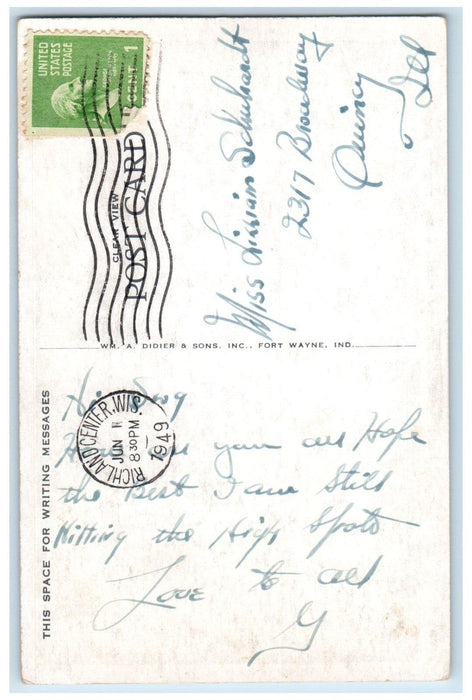 UNITED
STATES
POSTAGE
1
CENT
CLEAR VIEW
POST CARD
Miss Lillian Schuhardt
2317 Broadway
Quincy
Ill
WM. A. DIDIER & SONS, INC., FORT WAYNE, IND.
RICHLAND CENTER, WIS.
JUN
8 30 PM
1949
THIS SPACE FOR WRITING MESSAGES
Hi
How are you all Hope
the Best I am Still
Hitting the High Spots
Love to all
G